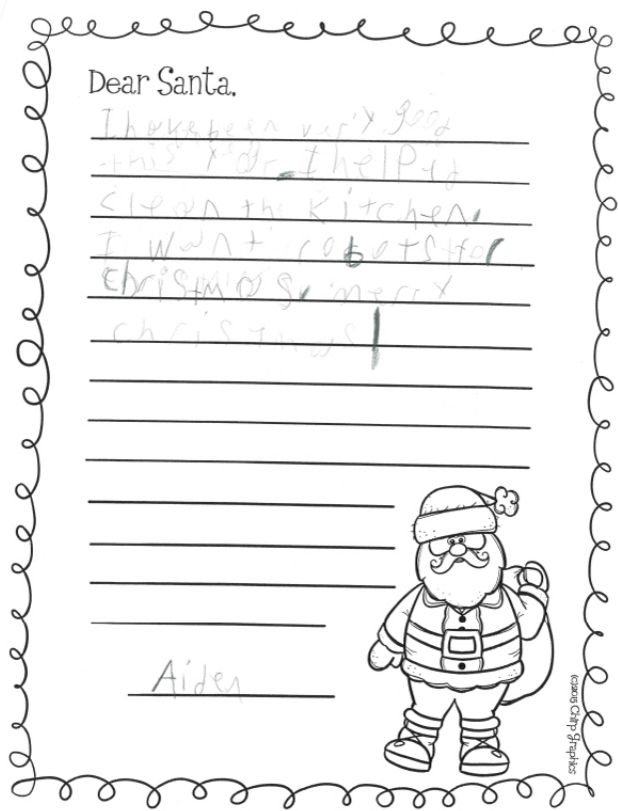 Dear Santa,
I have been very good
this year. I helped
clean the kitchen.
I want robots for
christmas. merry
christmas!
Aiden
(c)2015 Chirp Graphics